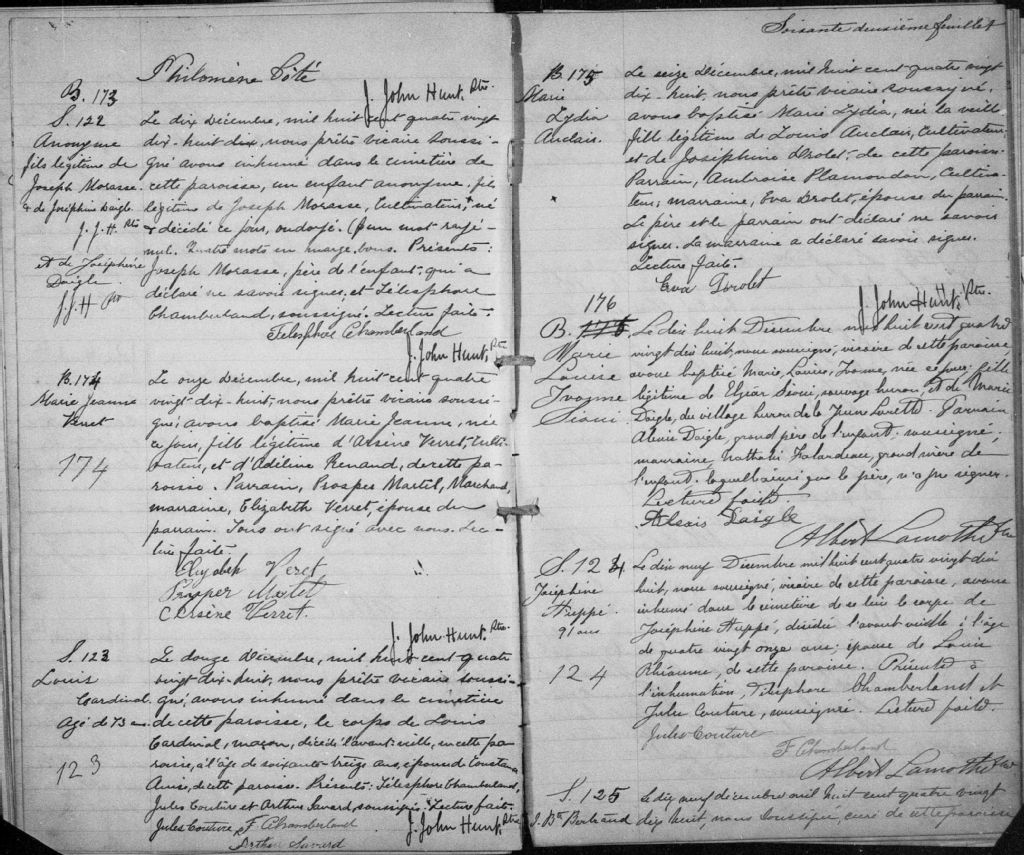 Philomène Côté
J. John Hunt, Ptre
B. 173
S. 122
Anonyme
fils légitime de
Joseph Morasse
& de Joséphine Daigle
J. J. H. Ptre
et de Joséphine
Daigle
J. J. H Ptre
Le dix Décembre, mil huit cent quatre vingt
dix-huit dix, nous prêtre vicaire soussi-
gné avons inhumé dans le cimetière de
cette paroisse, un enfant anonyme, fils
légitime de Joseph Morasse, Cultivateur, né
& décédé ce jour, ondoyé. (un mot rayé-
nul. Quatre mots en marge, bons. Présents:
Joseph Morasse, père de l'enfant, qui a
déclaré ne savoir signer, et Télesphore
Chamberland, soussigné. Lecture faite.
Telesphore Chamberland
J. John Hunt, Ptre
B. 174
Marie Jeanne
Verret
174
Le onze Décembre, mil huit cent quatre
vingt-dix-huit, nous prêtre vicaire soussi-
gné, avons baptisé Marie Jeanne, née
ce jour, fille légitime d'Arsène Verret, Culti-
vateur, et d'Adéline Renaud, de cette pa-
roisse. Parrain, Prosper Martel, Marchand,
marraine, Elizabeth Verret, épouse du
parrain. Tous ont signé avec nous. Lec-
ture faite.
Elizabeth Verret
Prosper Martel
Arsène Verret
J. John Hunt, Ptre.
S. 123
Louis
Cardinal
Agé de 73 ans
123
Le douze Décembre, mil huit cent quatre
vingt dix-huit, nous prêtre vicaire soussi-
gné, avons inhumé dans le cimetière
de cette paroisse, le corps de Louis
Cardinal, maçon, décédé l'avant-veille, en cette pa-
roisse, à l'âge de soixante-treize ans, époux de
de cette paroisse. Présents: Télesphore Chamberland,
Jules Couture et Arthur Savard, soussignés. Lecture faite.
Jules Couture, F Chamberland
J. John Hunt, Ptre
Arthur Savard
Soixante deuxième feuillet
B. 175
Marie
Lydia
Auclair.
Le seize Décembre, mil huit cent quatre vingt
dix-huit, nous prêtre vicaire soussigné,
avons baptisé Marie Lydia, née la veille
fille légitime de Louis Auclair, Cultivateur
et de Joséphine Drolet, de cette paroisse.
Parrain, Ambroise Plamondon, Cultiva-
teur, marraine, Eva Drolet, épouse du parrain.
Le père et le parrain ont déclaré ne savoir
signer. La marraine a déclaré savoir signer.
Lecture faite.
Eva Drolet
J. John Hunt, Ptre.
176
B. 176
Marie
Louise
Ivonne
Sioui
Le dix huit Décembre mil huit cent quatre
vingt dix huit, nous soussigné, vicaire de cette paroisse
avons baptisé Marie, Louise, Ivonne, née ce jour, fille
légitime de Elzéar Sioui, sauvage huron, et de Marie
Daigle, du village huron de la Jeune Lorette. Parrain
Alexis Daigle, grand père de l'enfant, soussigné;
marraine, Nathalie Falardeau, grand mère de
l'enfant, laquelle ainsi que le père, n'a pu signer.
Lecture faite.
Alexis Daigle
Albert Lamothe Ptre
S. 124
Joséphine
Huppé
91 ans
124
Le dix neuf Décembre mil huit cent quatre vingt dix
huit, nous soussigné, vicaire de cette paroisse, avons
inhumé dans le cimetière de ce lieu le corps de
Joséphine Huppé, décédée l'avant veille à l'âge
de quatre vingt onze ans; épouse de Louis
Rhéaume, de cette paroisse. Présents à
l'inhumation, Télesphore Chamberland et
Jules Couture, soussignés. Lecture faite.
Jules Couture
F Chamberland
Albert Lamothe Ptre
S. 125
J. Bte Bertrand
Le dix neuf décembre mil huit cent quatre vingt
dix huit, nous soussigné, curé de cette paroisse